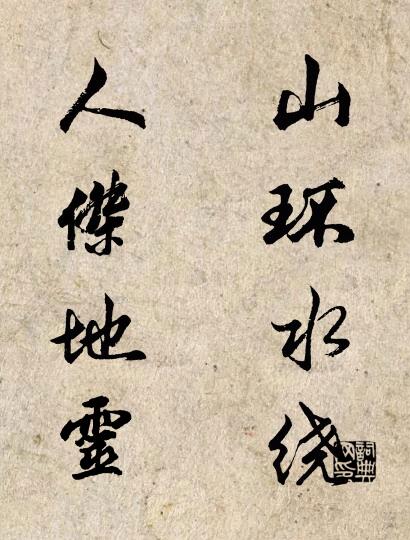 山环水绕
人傑地靈
詞典